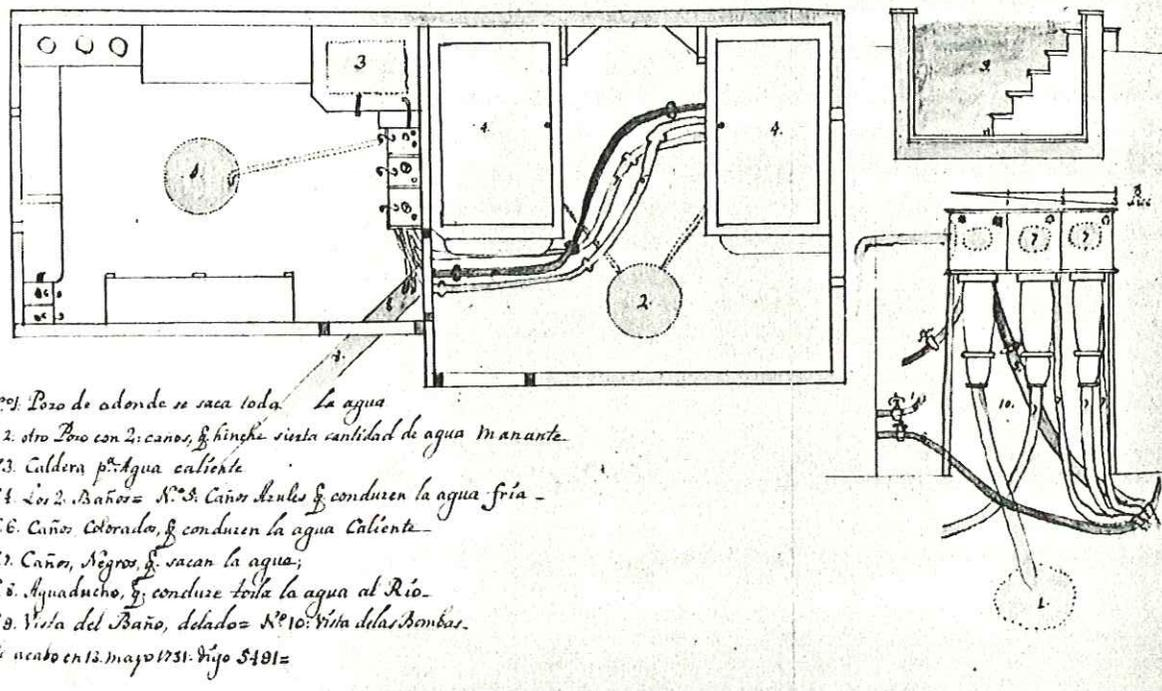 Nº1. Pozo de adonde se saca toda la agua
2. otro Pozo con 2: caños, q̃ hinche sierta cantidad de agua manante
3. Caldera pª. Agua caliente
4. Los 2. Baños= N.º 5. Caños Azules q̃ conduzen la agua fría_
6. Caños Colorados, q̃ conduzen la agua Caliente_
7. Caños, Negros, q̃. sacan la agua;
8. Aguaducho, q̃; conduze toda la agua al Río_
9. Vista del Baño, delado= Nº 10. Vista delas Bombas_
acabo en 13. mayo 1731. digo 5491=
3
1
4.
4.
2.
8
8.
9.
7
7
10.
1.